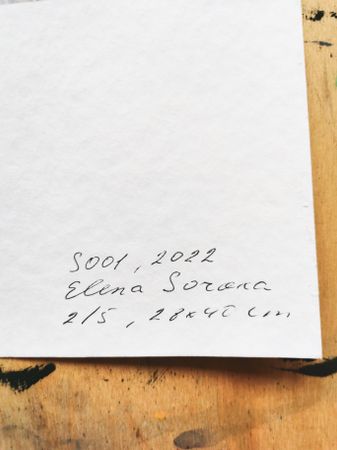 S001, 2022
Elena Soroka
2/5, 28x40 cm